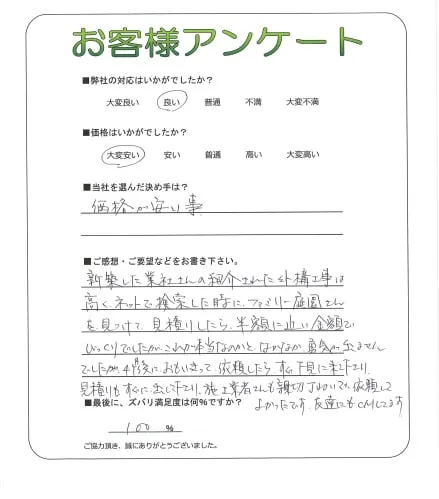 お客様アンケート
■弊社の対応はいかがでしたか？
大変良い 良い 普通 不満 大変不満
■価格はいかがでしたか？
大変安い 安い 普通 高い 大変高い
■当社を選んだ決め手は？
価格が安い事
■ご感想・ご要望などをお書き下さい。
新築した業社さんの紹介された外構工事は
高く、ネットで検索した時に、ファミリー庭園さん
を見つけて、見積りしたら、半額に近い金額で
びっくりでしたが、これが本当なのかと、なかなか勇気が出ません
でしたが、4月後におもいきって依頼したら、すぐ下見に来て下さり、
見積りもすぐに出して下さり、施工業者さんも親切丁寧で、依頼して
よかったです。友達にもCMしてます
■最後に、ズバリ満足度は何％ですか？
100 %
ご協力頂き、誠にありがとうございました。